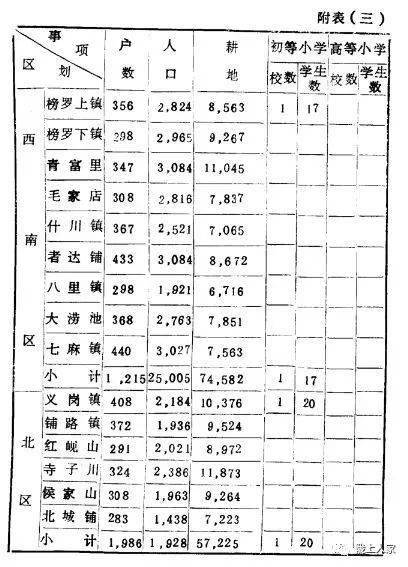 附表(三)
事项 区划 户数 人口 耕地 初等小学 高等小学
校数 学生数 校数 学生数
西南区
榜罗上镇 356 2,824 8,563 1 17
榜罗下镇 298 2,965 9,267
青富里 347 3,084 11,045
毛家店 308 2,816 7,837
什川镇 367 2,521 7,065
者达铺 433 3,084 8,672
八里镇 298 1,921 6,716
大涝池 368 2,763 7,851
七麻镇 440 3,027 7,563
小计 1,215 25,005 74,582 1 17
北区
义岗镇 408 2,184 10,376 1 20
铺路镇 372 1,936 9,524
红岘山 291 2,021 8,972
寺子川 324 2,386 11,873
侯家山 308 1,963 9,264
北城铺 283 1,438 7,223
小计 1,986 1,928 57,225 1 20
陇上人家